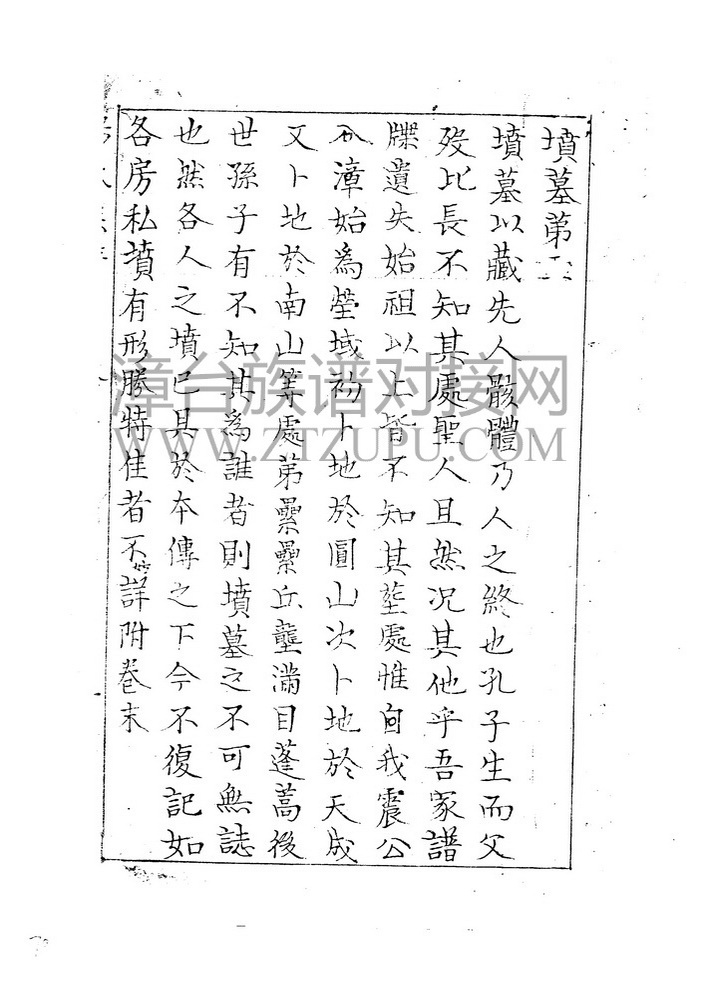 墳墓第六
墳墓以藏先人骸體乃人之終也孔子生而父
歿比長不知其處聖人且然况其他乎吾家譜
牒遺失始祖以上皆不知其塟處惟自我震公
入漳始為塋域初卜地於圓山次卜地於天成
又卜地於南山等處第纍纍丘壟滿目蓬蒿後
世孫子有不知其為誰者則墳墓之不可無誌
也然各人之墳已具於本傳之下今不復記如
各房私墳有形勝特佳者不詳附卷末
漳台族谱对接网
WWW.ZTZUPU.COM